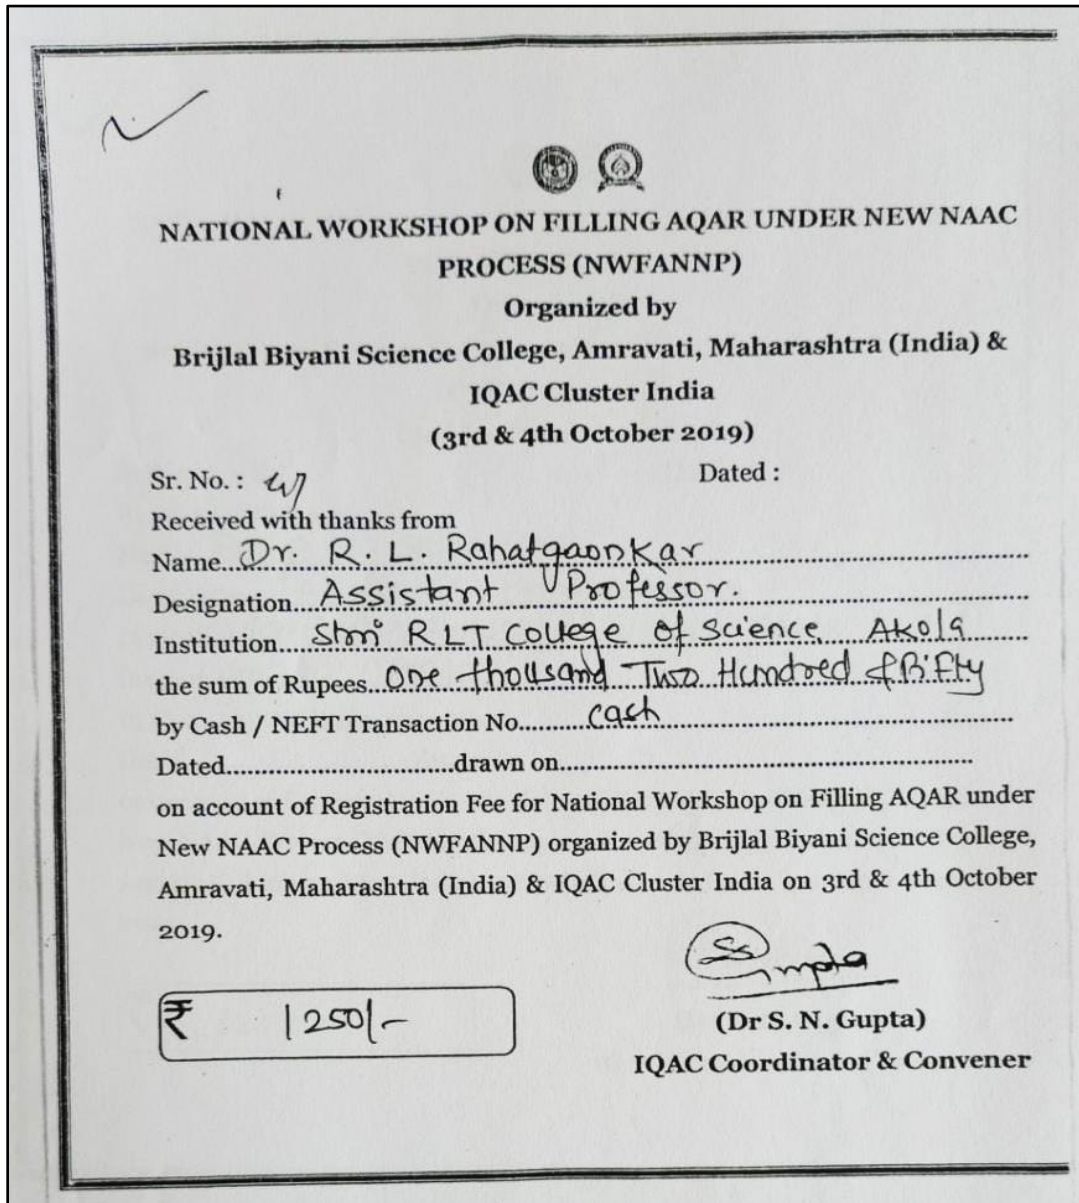 NATIONAL WORKSHOP ON FILLING AQAR UNDER NEW NAAC
PROCESS (NWFANNP)
Organized by
Brijlal Biyani Science College, Amravati, Maharashtra (India) &
IQAC Cluster India
(3rd & 4th October 2019)
Sr. No. : Dated :
Received with thanks from
Name...Dr. R. L. Rahatgaonkar
Designation....Assistant Professor.
Institution....Shri RLT College of Science Akola
the sum of Rupees...One thousand Two Hundred & Fifty
by Cash / NEFT Transaction No.........cash
Dated.................................drawn on............................................................
on account of Registration Fee for National Workshop on Filling AQAR under
New NAAC Process (NWFANNP) organized by Brijlal Biyani Science College,
Amravati, Maharashtra (India) & IQAC Cluster India on 3rd & 4th October
2019.
Gupta
₹ 1250/-
(Dr S. N. Gupta)
IQAC Coordinator & Convener